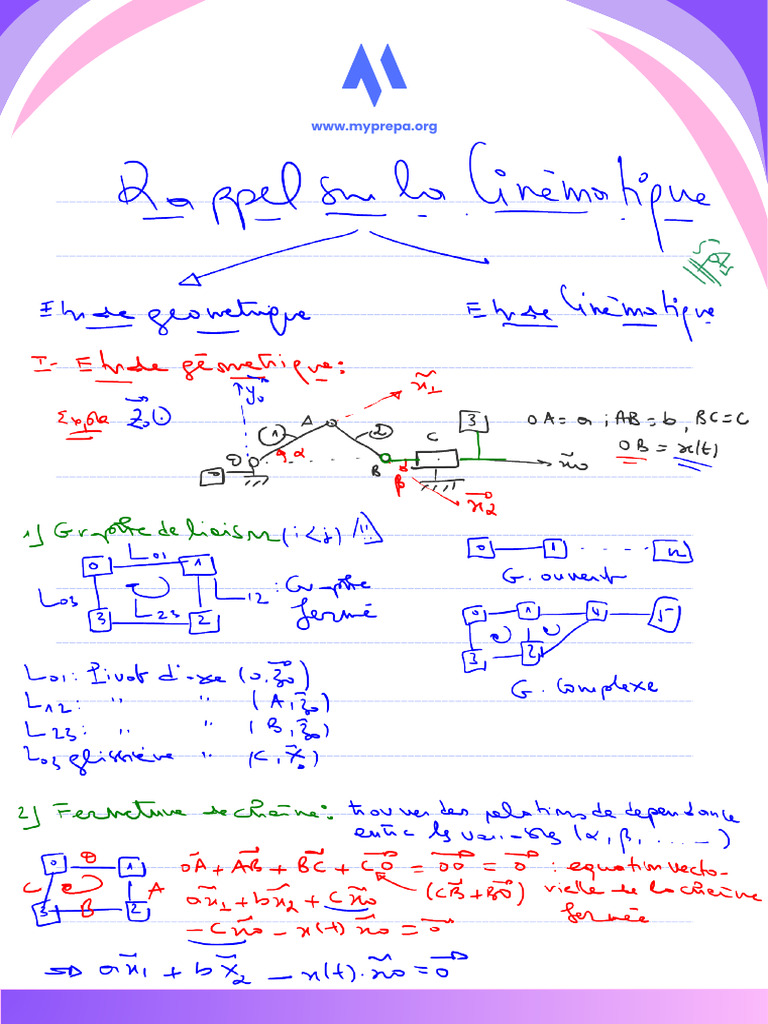 www.myprepa.org
Rappel sur la Cinématique
Etude géometrique
Etude Cinématique
I- Etude géometrique:
Exple z₀⃗ ⊙
y₀⃗
x₁⃗
A
1
2
α
O
0
B
β
C
3
x₀⃗
x₂⃗
OA = a ; AB = b , BC = C
OB = x(t)
1) Graphe de liaison (i<j) /!!\
0 L01 1
L03
L12 : Graphe
fermé
3 L23 2
0 1 ..... n
G. ouvert
0 1 4 5
3 2
G. Complexe
L01: Pivot d'axe (O,z₀⃗)
L12: " " (A,z₀⃗)
L23: " " (B,z₀⃗)
L03 glissière " (C,x₀⃗)
2) Fermeture de chaine: trouver des relations de dependance
entre les variables (α, β, .....)
0 O 1
C A
3 B 2
OA⃗ + AB⃗ + BC⃗ + CO⃗ = OO⃗ = 0⃗ : equation vecto-
(CB⃗+BO⃗) rielle de la chaine
fermée
ax₁⃗ + bx₂⃗ + Cx₀⃗
- Cx₀⃗ - x(t) x₀⃗ = 0⃗
⇒ ax₁⃗ + bx₂⃗ - x(t).x₀⃗ = 0⃗